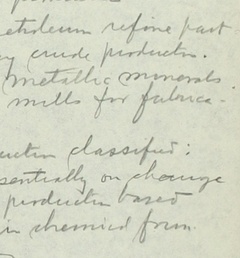 etroleum refine part
crude producten.
metallic minerals
mills for fabrica-
uction classified:
sentially on change
production based
in chemical form